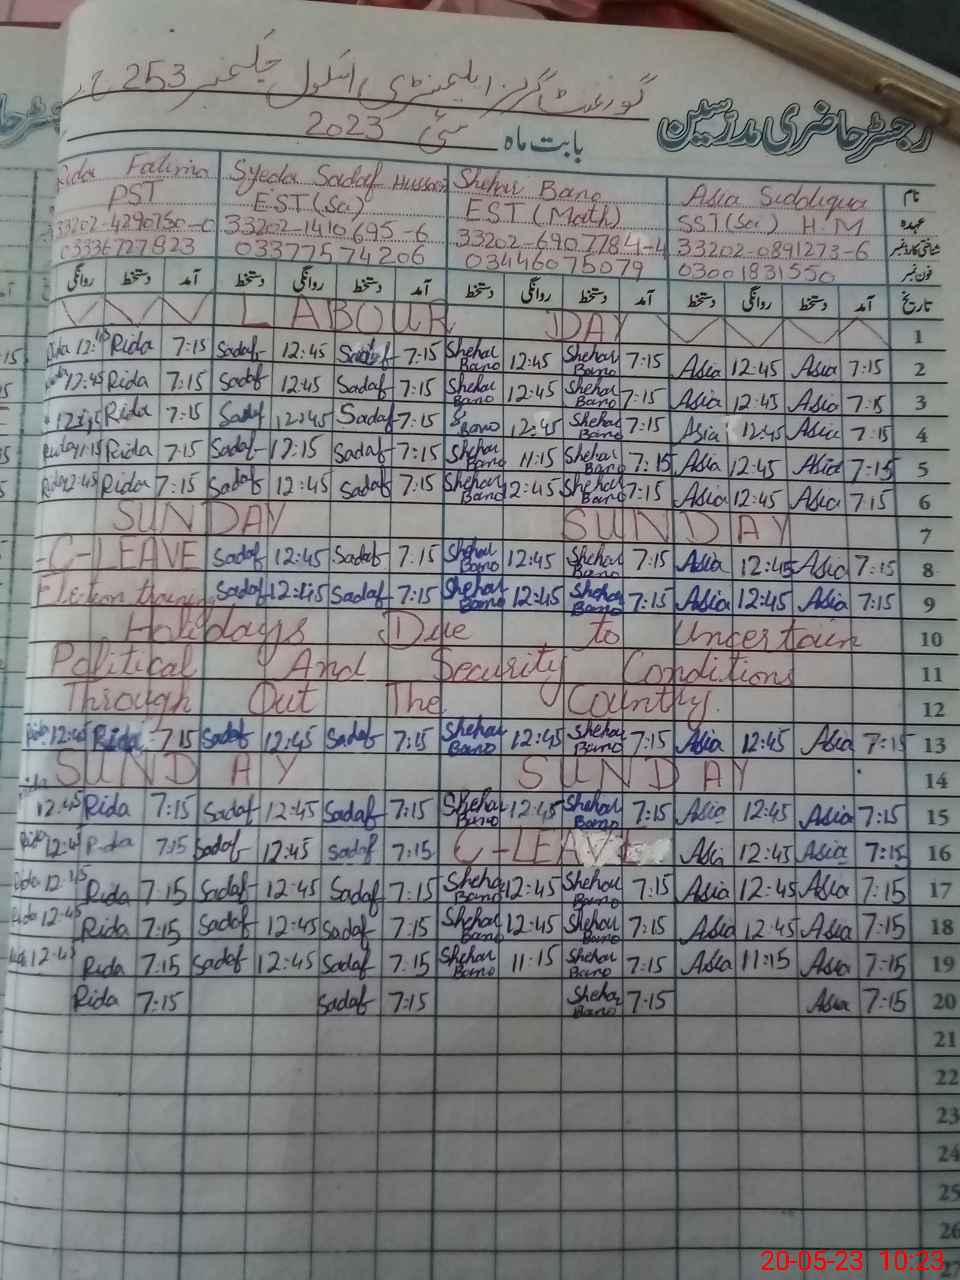 گورنمنٹ گرلز ایلیمنٹری اسکول چک نمبر 253 ج ب
رجسٹر حاضری مدرسین
بابت ماہ مئی 2023
Rida Fatima Syeda Sadaf Hussain Shehar Bano Asia Siddiqua نام
PST EST (Sci) EST (Math) SST (Sci) H.M عہدہ
33202-4290750-0 33202-1410695-6 33202-6907784-4 33202-0891273-6 شناختی کارڈ نمبر
03336727823 03377574206 03446075079 03001831550 فون نمبر
روانگی دستخط آمد دستخط روانگی دستخط آمد دستخط روانگی دستخط آمد دستخط روانگی دستخط آمد تاریخ
LABOUR DAY 1
Rida 12:45 Rida 7:15 Sadaf 12:45 Sadaf 7:15 Shehar Bano 12:45 Shehar Bano 7:15 Asia 12:45 Asia 7:15 2
12:45 Rida 7:15 Sadaf 12:45 Sadaf 7:15 Shehar Bano 12:45 Shehar Bano 7:15 Asia 12:45 Asia 7:15 3
Rida 7:15 Sadaf 12:45 Sadaf 7:15 Bano 12:45 Shehar Bano 7:15 Asia 12:45 Asia 7:15 4
Rida 11:15 Rida 7:15 Sadaf 11:15 Sadaf 7:15 Shehar Bano 11:15 Shehar Bano 7:15 Asia 12:45 Asia 7:15 5
Rida 12:45 Rida 7:15 Sadaf 12:45 Sadaf 7:15 Shehar Bano 12:45 Shehar Bano 7:15 Asia 12:45 Asia 7:15 6
SUNDAY SUNDAY 7
C-LEAVE Sadaf 12:45 Sadaf 7:15 Shehar Bano 12:45 Shehar Bano 7:15 Asia 12:45 Asia 7:15 8
Election training Sadaf 12:45 Sadaf 7:15 Shehar Bano 12:45 Shehar Bano 7:15 Asia 12:45 Asia 7:15 9
Holidays Due to Uncertain 10
Political And Security Conditions 11
Through Out The Country. 12
Rida 12:45 Rida 7:15 Sadaf 12:45 Sadaf 7:15 Shehar Bano 12:45 Shehar Bano 7:15 Asia 12:45 Asia 7:15 13
SUNDAY SUNDAY 14
Rida 12:45 Rida 7:15 Sadaf 12:45 Sadaf 7:15 Shehar Bano 12:45 Shehar Bano 7:15 Asia 12:45 Asia 7:15 15
Rida 12:45 Rida 7:15 Sadaf 12:45 Sadaf 7:15 C-LEAVE Asia 12:45 Asia 7:15 16
Rida 12:45 Rida 7:15 Sadaf 12:45 Sadaf 7:15 Shehar Bano 12:45 Shehar Bano 7:15 Asia 12:45 Asia 7:15 17
Rida 12:45 Rida 7:15 Sadaf 12:45 Sadaf 7:15 Shehar Bano 12:45 Shehar Bano 7:15 Asia 12:45 Asia 7:15 18
Rida 12:45 Rida 7:15 Sadaf 12:45 Sadaf 7:15 Shehar Bano 11:15 Shehar Bano 7:15 Asia 11:15 Asia 7:15 19
Rida 7:15 Sadaf 7:15 Shehar Bano 7:15 Asia 7:15 20
21
22
23
24
25
26
27
20-05-23 10:23